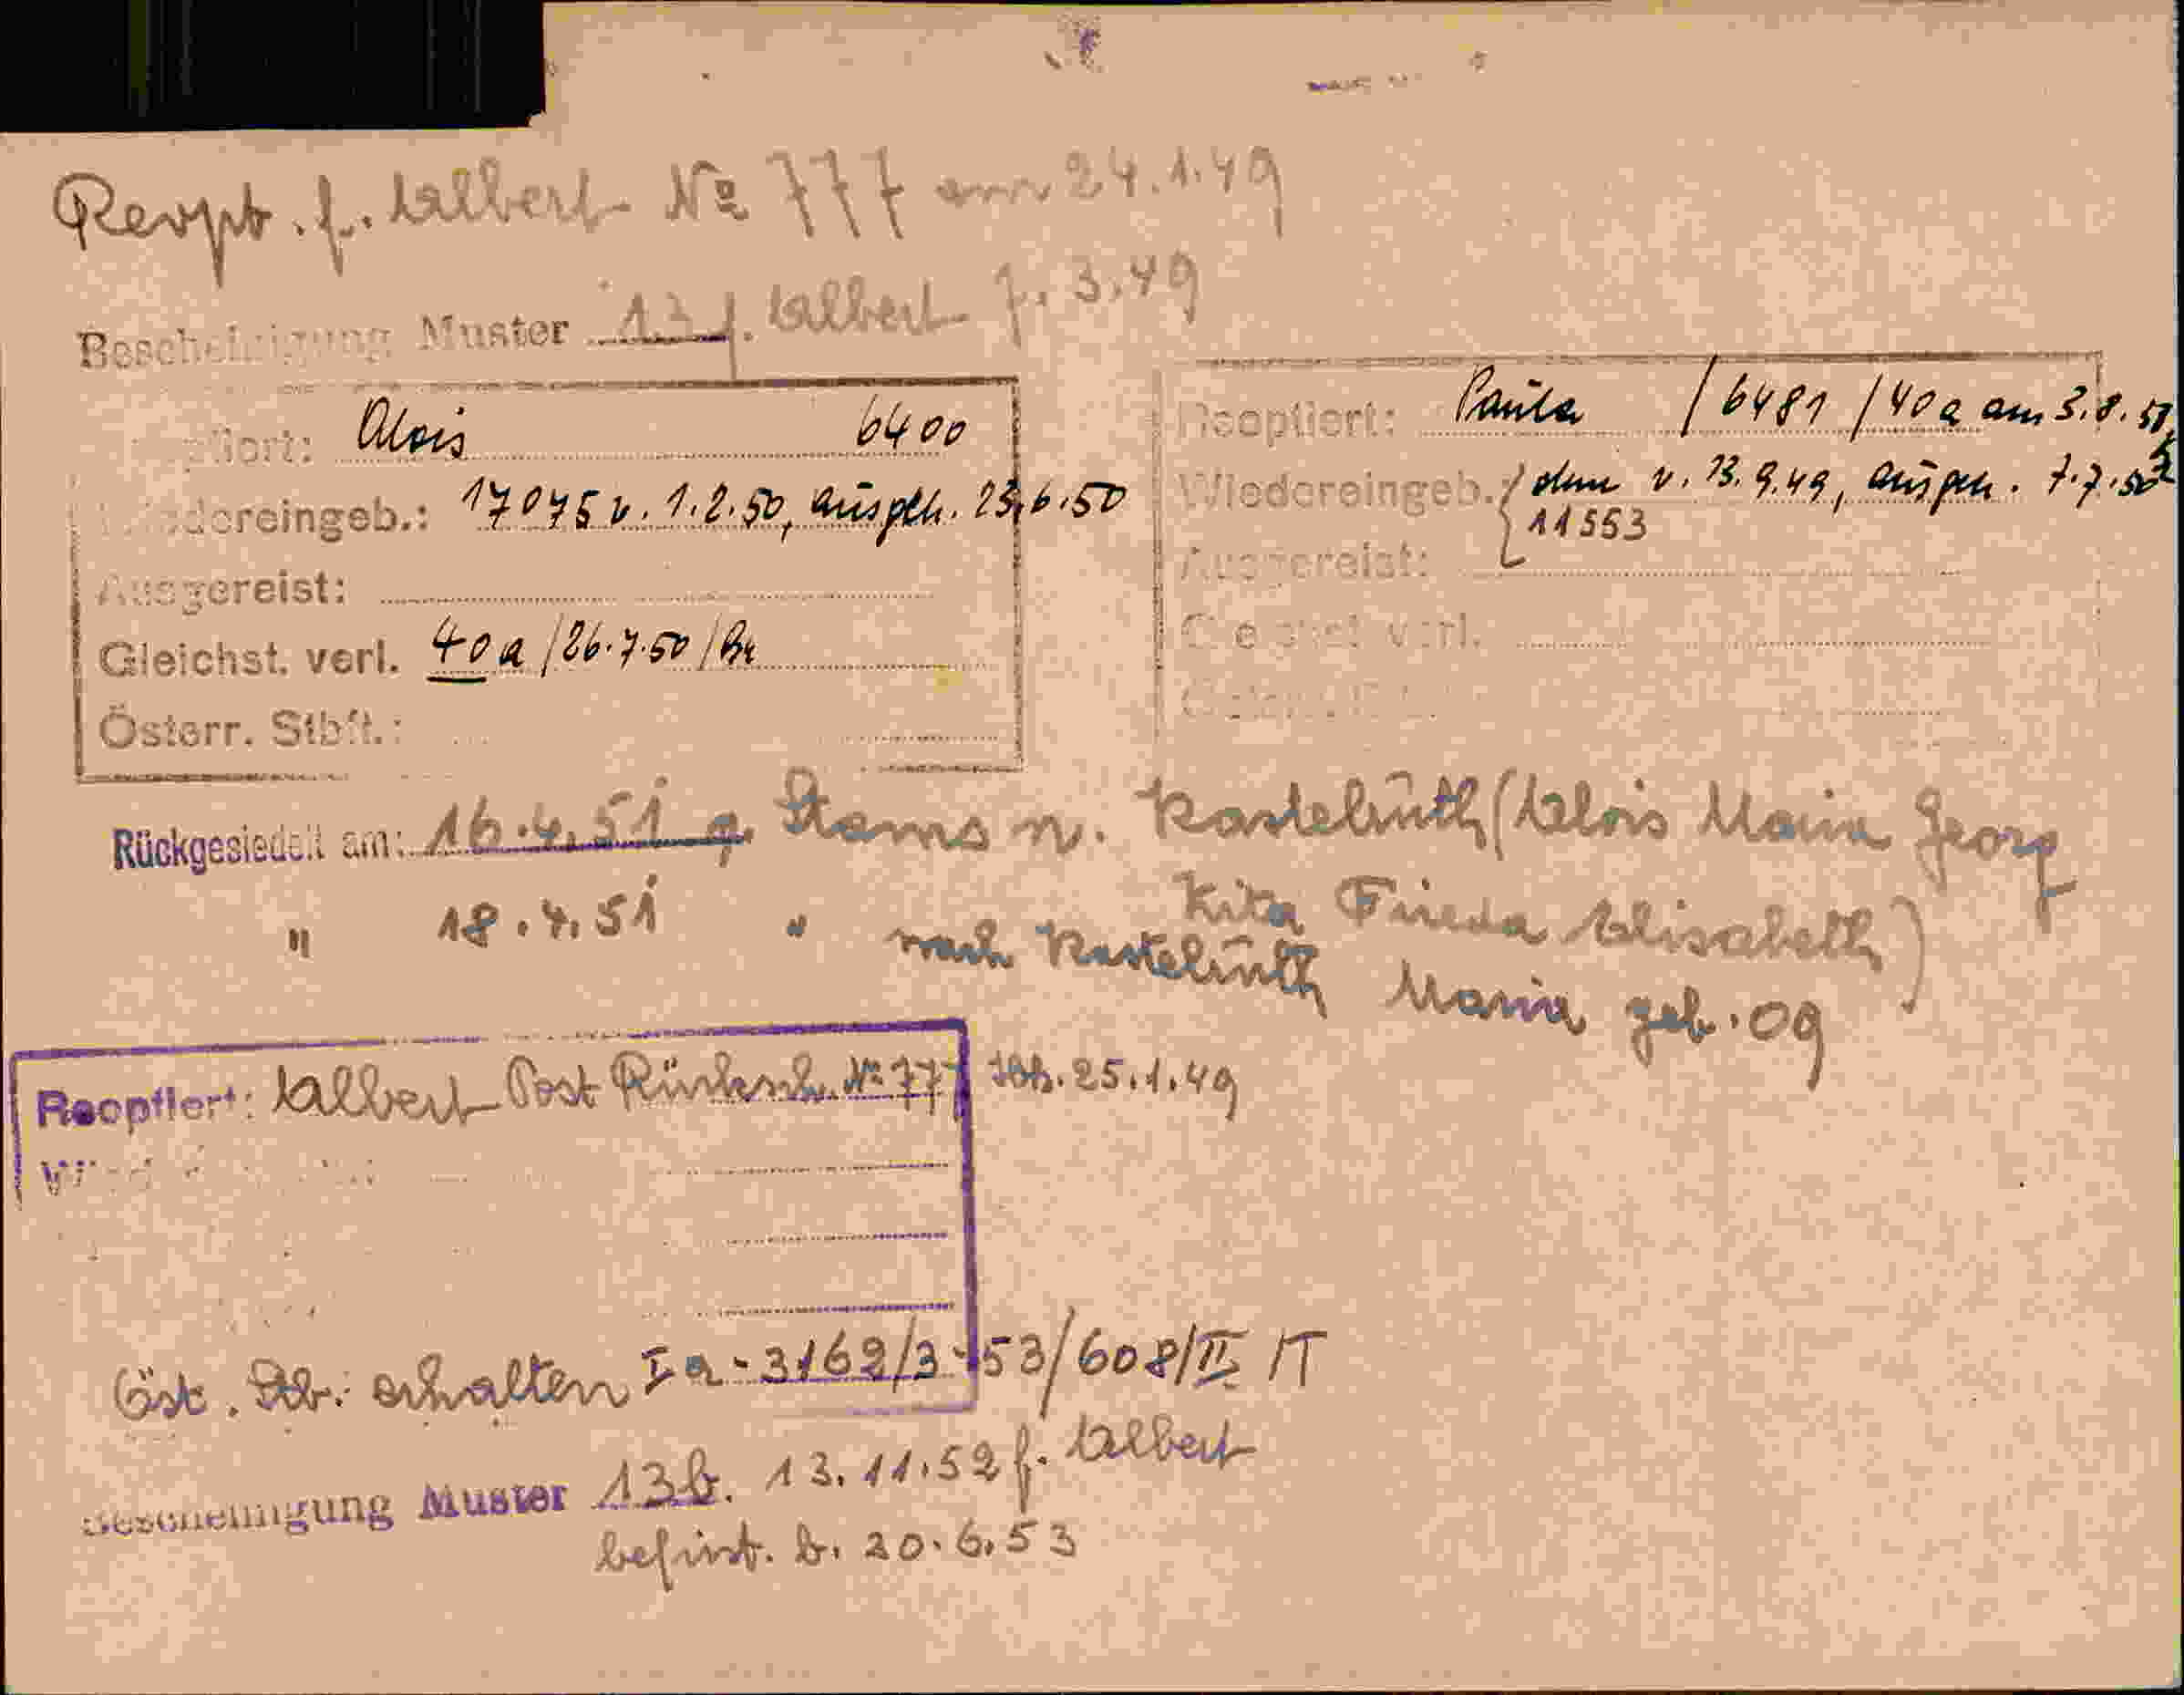 Reopt. f. Albert № 777 am 24.1.49
Bescheinigung Muster 13 f. Albert 7.3.49
Alois 6400
Wiedereingeb.: 17075 v. 1.2.50, ausgeh. 23.6.50
Ausgereist:
Gleichst. verl. 40a/26.7.50/
Österr. Stbft.:
Reoptiert: Paula /6481 /40a am 3.8.
Wiedereingeb. v. 13.9.49, ausgeh. 7.7.50
11553
Ausgereist:
Gleichst. verl.
Rückgesiedelt am: 16.4.51 Stams n. Kastelruth (Alois Maria Georg
Rita Frieda Elisabeth)
" 18.4.51 " nach Kastelruth Maria geb. 09
Reoptiert: Albert Post Rücksch. № 777 25.1.49
Öst. Stb. erhalten Ia-3162/3-53/608/II /T
Bescheinigung Muster 13b. 13.11.52 f. Albert
befrist. b. 20.6.53